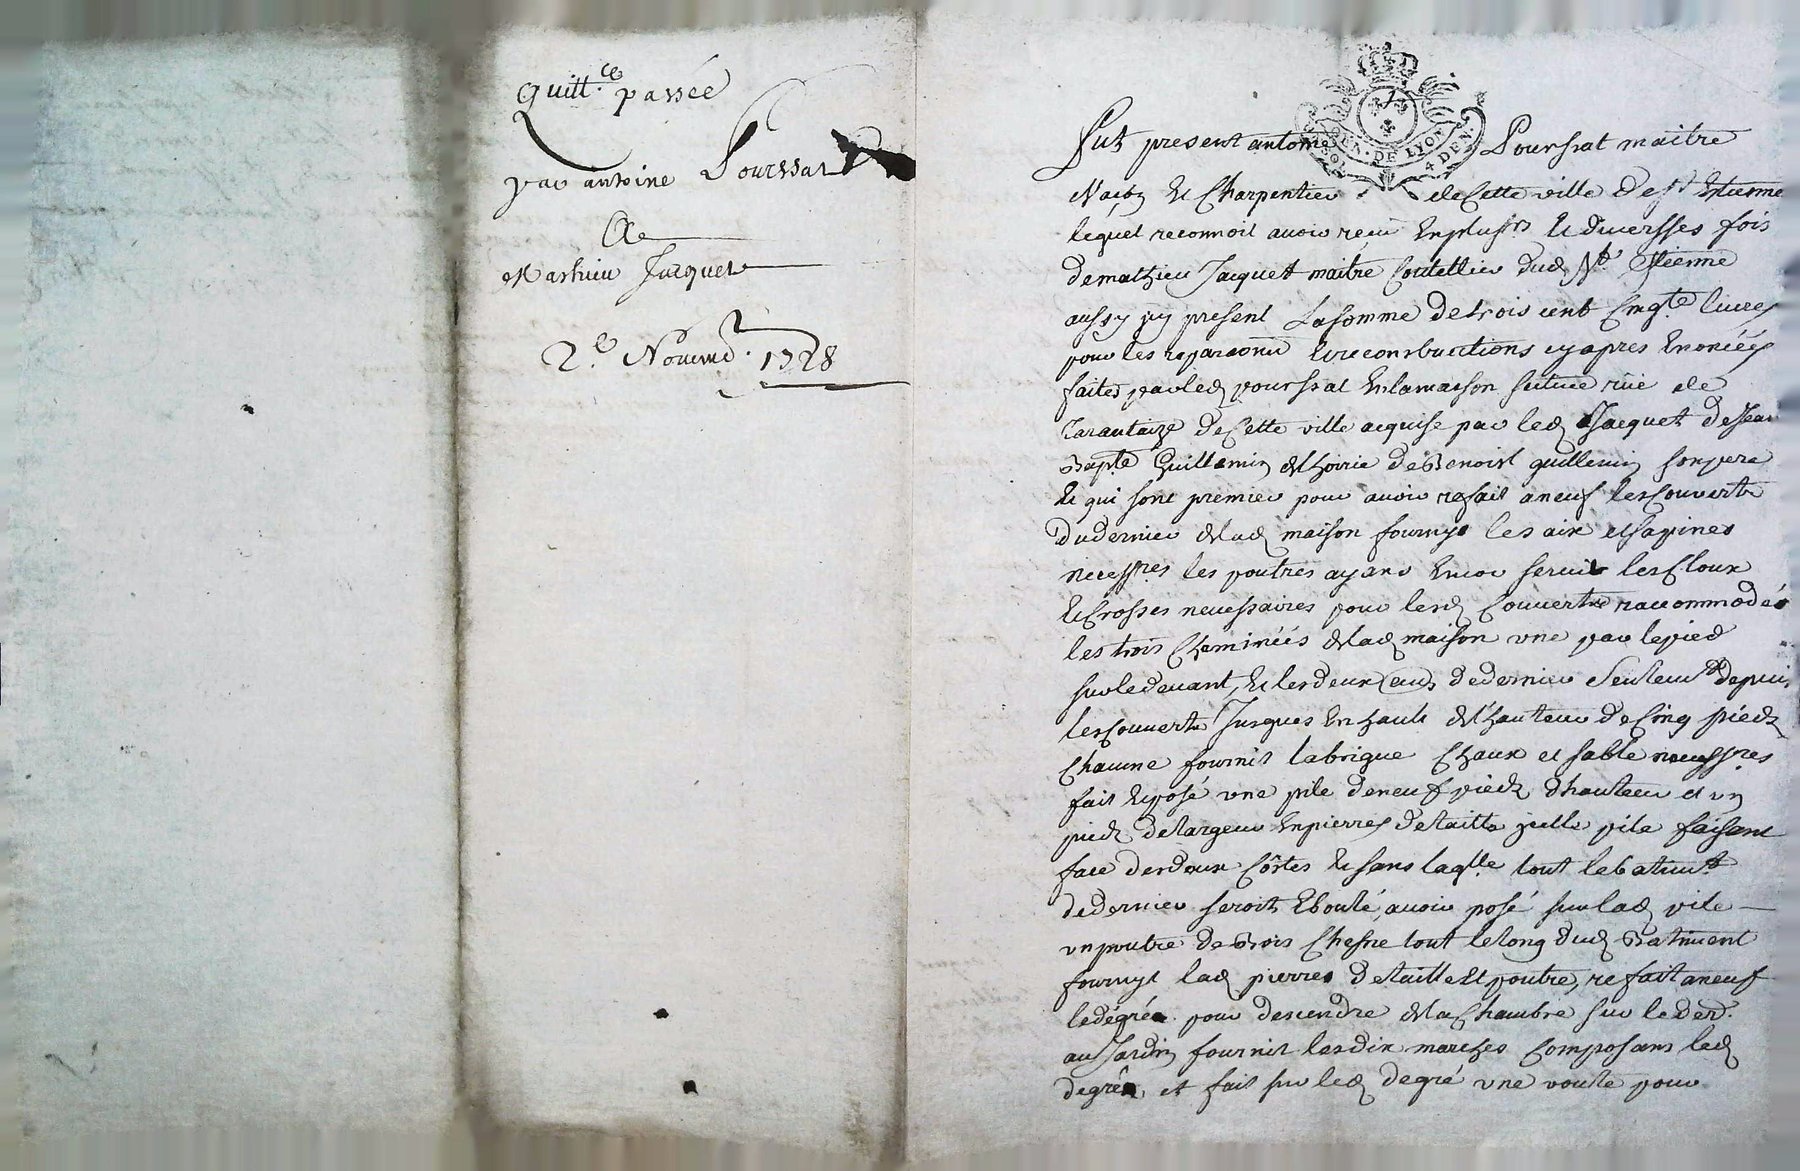 Quitt.ce passée
par antoine Pourssat
A
Mathieu Jacquet
2.e Novemb. 1728
GEN. DE LYON
4 DEN.
Fut present antoine Poursrat maitre
Maçon & Charpentier de Cette ville de st Estienne
lequel reconnoit avoir receu En plusrs & diversses fois
de mathieu Jacquet maitre Coutellier dud St Estienne
aussy icy present La somme de trois cent Cinqte livres
pour les reparaõns & reconstructions cy apres Enoncéés
faites par led poursrat En la maison scituée rüe de
Tarantaize de Cette ville acquise par led Jacquet de Jean
Bapte Guillemin & hoirie de Benoist guillemin son pere
& qui sont premier pour avoir refait a neuf les Couverts
du dernier de lad maison fournys les aix et sapines
necessres les poutres ayant Encor servit les Cloux
& Crosses necessaires pour lesd Couverts raccommodés
les trois Cheminéés de lad maison une par le pied
sur le devant, & les deux de dernier Seulemt depuis
les Couverts Jusques En haut de l'hauteur de Cinq pieds
Chacune fournit la brique Chaux et sable necessres
fait & posé une pile de neuf pieds d'hauteur et un
pied de largeur En pierres de taille jcelle pile faisant
face des deux Côrtes & sans laqlle tout le batimt
de dernier seroit Eboulé, avoir posé sur lad pile
un poutre de Bois Chesne tout le long dud Batiment
fournyt lad pierres de taille Et poutre, refait a neuf
le dégréé pour descendre de la Chambre sur le der.
au Jardin fournit les dix marches Composans led
degré, et fait sur led degré une voute pour